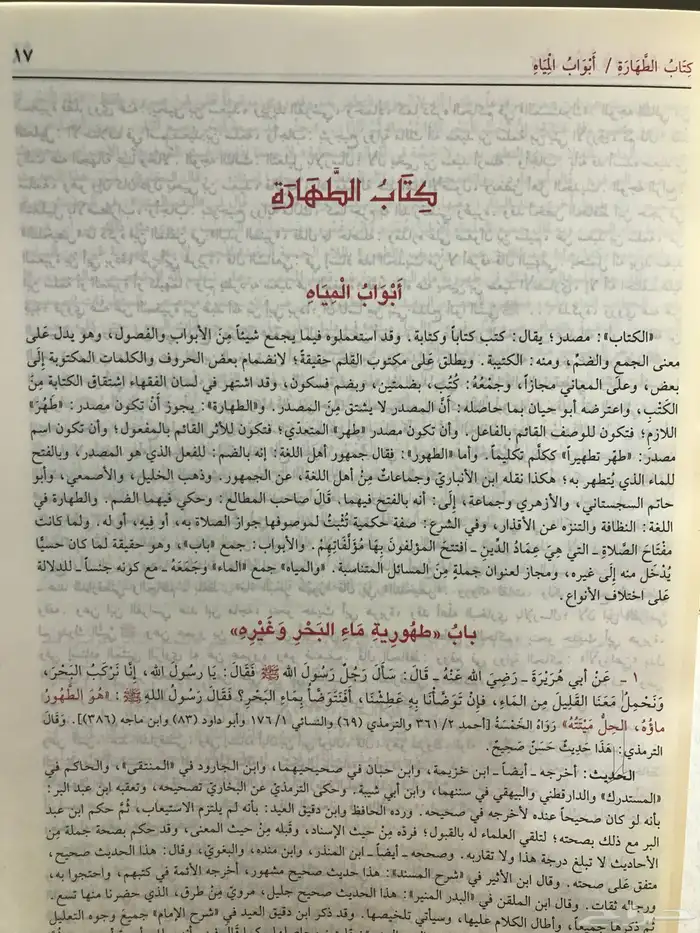 كِتَابُ الطَّهَارَةِ / أَبْوَابُ الْمِيَاهِ
١٧
كِتَابُ الطَّهَارَةِ
أَبْوَابُ الْمِيَاهِ
«الكتاب»: مصدر؛ يقال: كتب كتاباً وكتابة. وقد استعملوه فيما يجمع شيئاً مِنَ الأبواب والفصول، وهو يدل عَلى
معنى الجمع والضمِّ، ومنه: الكتيبة. ويطلق عَلى مكتوب القلم حقيقةً؛ لانضمام بعض الحروف والكلمات المكتوبة إلَى
بعض، وعلَى المعاني مجازاً، وجمْعُهُ: كُتُب، بضمتين، وبضم فسكون، وقد اشتهر في لسان الفقهاء اشتقاق الكتابة مِنَ
الكَتْبِ، واعترضه أبو حيان بما حاصله: أَنَّ المصدر لا يشتق مِنَ المصدر. و«الطهارة»: يجوز أَنْ تكون مصدر: «طَهُرَ»
اللازم؛ فتكون للوصف القائم بالفاعل. وأن تكون مصدر «طهر» المتعدّي؛ فتكون للأثر القائم بالمفعول؛ وأن تكون اسم
مصدر: «طهّر تطهيراً» ككلَّم تكليماً. وأما «الطهور»: فقال جمهور أهل اللغة: إنه بالضم: للفعل الذي هو المصدر، وبالفتح
للماء الذي يُتطهر به؛ هكذا نقله ابن الأنباريّ وجماعاتٌ مِنْ أهل اللغة، عن الجمهور. وذهب الخليل، والأصمعي، وأبو
حاتم السجستاني، والأزهري وجماعة، إلَى: أنه بالفتح فيهما. قَالَ صاحب المطالع: وحكي فيهما الضم. والطهارة في
اللغة: النظافة والتنزه عن الأقذار، وفي الشرع: صفة حكمية تُثْبِتُ لموصوفها جواز الصلاة به، أو فِيهِ، أو له. ولما كانت
مِفْتَاحَ الصَّلاةِ ـ التي هِيَ عِمَادُ الدِّينِ ـ افتتحَ المؤلفونَ بِهَا مُؤلَّفَاتِهِمْ. والأبواب: جمع «باب»، وهو حقيقة لما كان حسيًّا
يُدْخَل منه إلَى غيره، ومجاز لعنوان جملةٍ مِنَ المسائل المتناسبة. «والمياه» جمع «الماء» وجَمَعَهُ ـ مع كونه جنساً ـ للدلالة
عَلى اختلاف الأنواع.
بابُ «طهُورِيةِ مَاءِ البَحْرِ وَغَيْرِهِ»
١ ـ عَنْ أبي هُرَيْرَةَ ـ رَضِيَ اللهُ عَنْهُ ـ قَالَ: سَأَلَ رَجُلٌ رَسُولَ اللهِ ﷺ فَقَالَ: يَا رسُولَ اللهِ، إِنَّا نَرْكَبُ البَحْرَ،
وَنَحْمِلُ مَعَنَا القَلِيلَ مِن المَاءِ، فَإِنْ تَوَضَّأْنَا بِهِ عَطِشْنَا، أَفَنَتَوَضَّأُ بِمَاءِ البَحْرِ؟ فَقَالَ رَسُولُ اللهِ ﷺ: «هُوَ الطَّهُورُ
ماؤُهُ، الحِلُّ مَيْتَتُهُ» رَوَاهُ الخَمْسَةُ [أحمد ٣٦١/٢ والترمذي (٦٩) والنسائي ١٧٦/١ وأبو داود (٨٣) وابن ماجه (٣٨٦)]. وَقَالَ
الترمذي: هَذَا حَدِيثٌ حَسَنٌ صَحِيحٌ.
الحَدِيث: أخرجه ـ أيضاً ـ ابن خزيمة، وابن حبان في صحيحيهما، وابن الجارود في «المنتقى»، والحاكم في
«المستدرك» والدارقطني والبيهقي في سننهما، وابن أبي شيبة. وحكى الترمذي عن البخاريّ تصحيحه، وتعقبه ابن عبد البر:
بأنه لو كان صحيحاً عنده لأخرجه في صحيحه. ورده الحافظ وابن دقيق العيد: بأنه لم يلتزم الاستيعاب، ثُمَّ حكم ابن عبد
البر مع ذلك بصحته؛ لتلقي العلماء له بالقبول؛ فردّه مِنْ حيث الإسناد، وقبله مِنْ حيث المعنى، وقد حكم بصحة جملة مِنَ
الأحاديث لا تبلغ درجة هذا ولا تقاربه. وصححه ـ أيضاً ـ ابن المنذر، وابن منده، والبغويّ، وقال: هذا الحديث صحيح،
متفق عَلى صحته. وقال ابن الأثير في «شرح المسند»: هذا حديث صحيح مشهور، أخرجه الأئمة في كتبهم، واحتجوا به،
ورجاله ثقات. وقال ابن الملقن في «البدر المنير»: هذا الحديث صحيح جليل، مرويّ مِنْ طرق، الذي حضرنا منها تسع.
ثمَّ ذكرها جميعاً، وأطال الكلام عليها، وسيأتي تلخيصها. وقد ذكر ابن دقيق العيد في «شرح الإمام» جميعَ وجوه التعليل